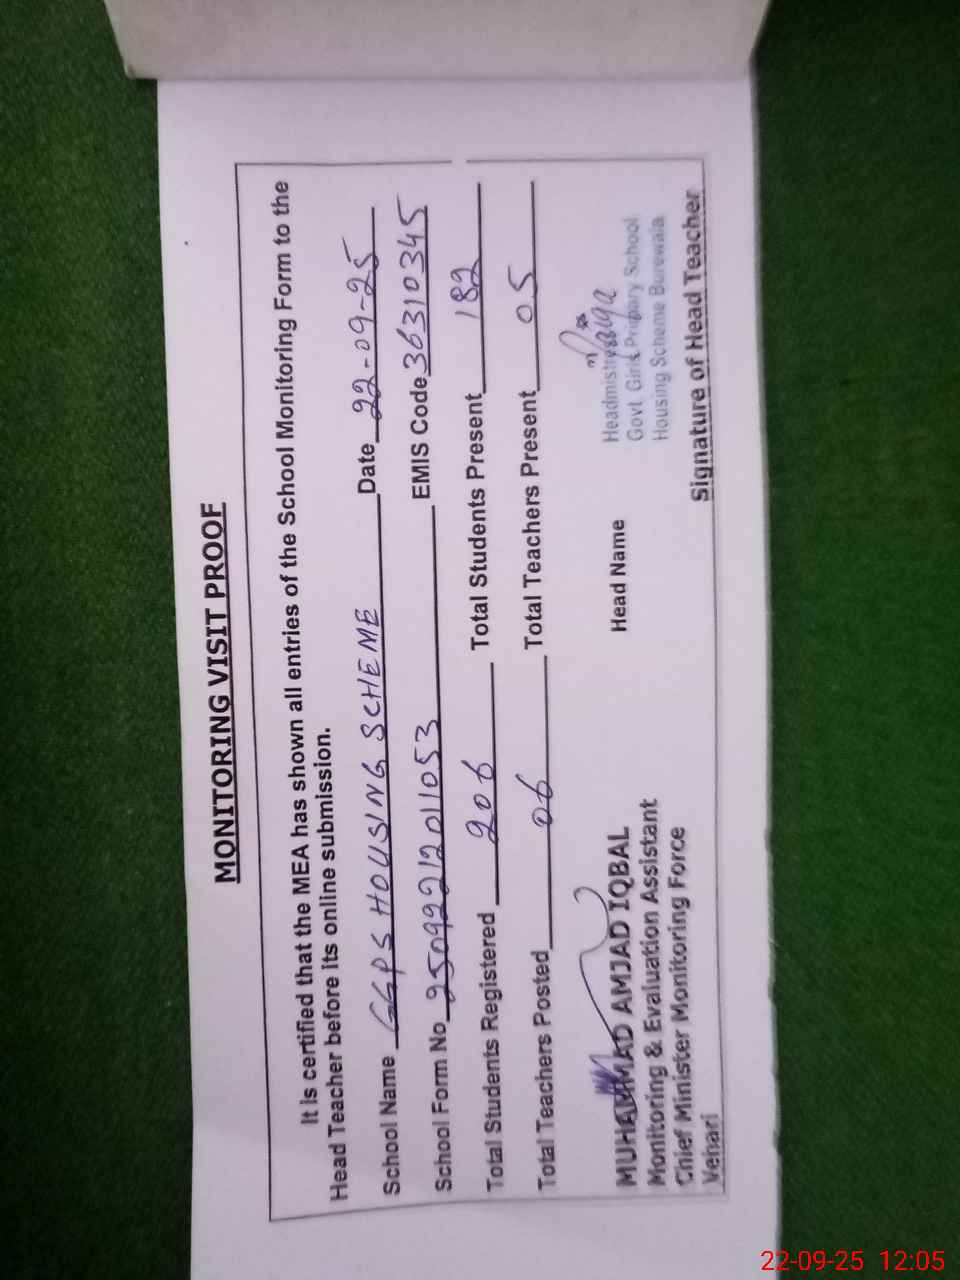 MONITORING VISIT PROOF
It is certified that the MEA has shown all entries of the School Monitoring Form to the
Head Teacher before its online submission.
School Name GGPS HOUSING SCHEME Date 22-09-25
School Form No 25092212011053 EMIS Code 36310345
Total Students Registered 206 Total Students Present 182
Total Teachers Posted 06 Total Teachers Present 05
MUHAMMAD AMJAD IQBAL
Monitoring & Evaluation Assistant
Chief Minister Monitoring Force
Vehari
Head Name
Headmistress
Govt. Girls Primary School
Housing Scheme Burewala
Signature of Head Teacher
22-09-25 12:05